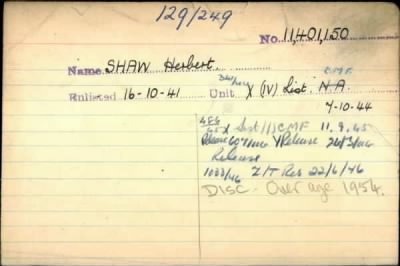 129/249
No. 11401150
Name SHAW Herbert.
CMF
Enlisted 16-10-41 Unit X (IV) List. N.A.
7-10-44
X List CMF 11.9.45
Release 26/3/46
Release
Z/T Res 22/6/46
DISC - Over age 1954.